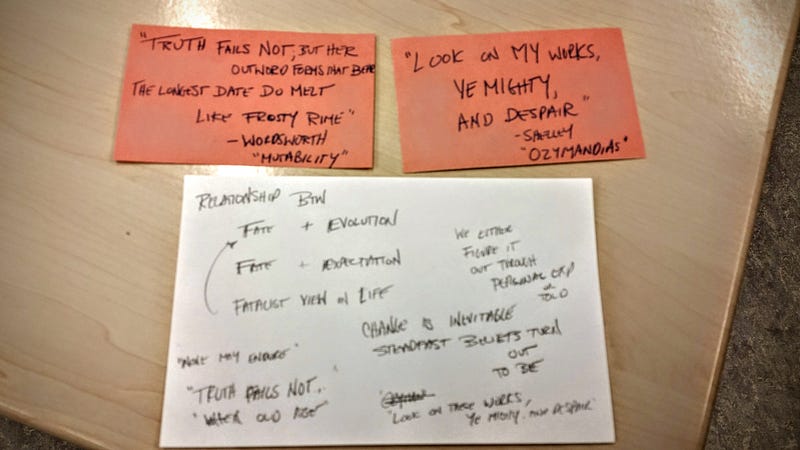 "TRUTH FAILS NOT, BUT HER
OUTWORD FORMS THAT BEAR
THE LONGEST DATE DO MELT
LIKE FROSTY RIME"
-WORDSWORTH
"MUTABILITY"
"LOOK ON MY WORKS,
YE MIGHTY,
AND DESPAIR"
-SHELLEY
"OZYMANDIAS"
RELATIONSHIP BTW
FATE + EVOLUTION
FATE + EXPECTATION
FATALIST VIEW ON LIFE
WE EITHER
FIGURE IT
OUT THROUGH
PERSONAL EXP
or
TOLD
CHANGE IS INEVITABLE
STEADFAST BELIEFS TURN
OUT
TO BE
"NONE MAY ENDURE"
"TRUTH FAILS NOT,
OLD AGE"
"LOOK ON THESE WORKS,
YE MIGHTY, AND DESPAIR"